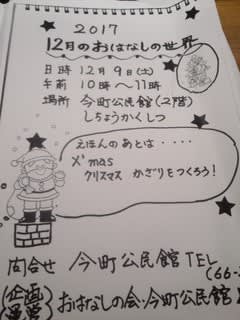 2017
12月のおはなしの世界
日時 12月9日(土)
午前 10時~11時
場所 今町公民館(2階)
しちょうかくしつ
えほんのあとは・・・・
X'mas
クリスマス かざりをつくろう!
問合せ 今町公民館TEL
(66-
(企画運営) おはなしの会・今町公民館